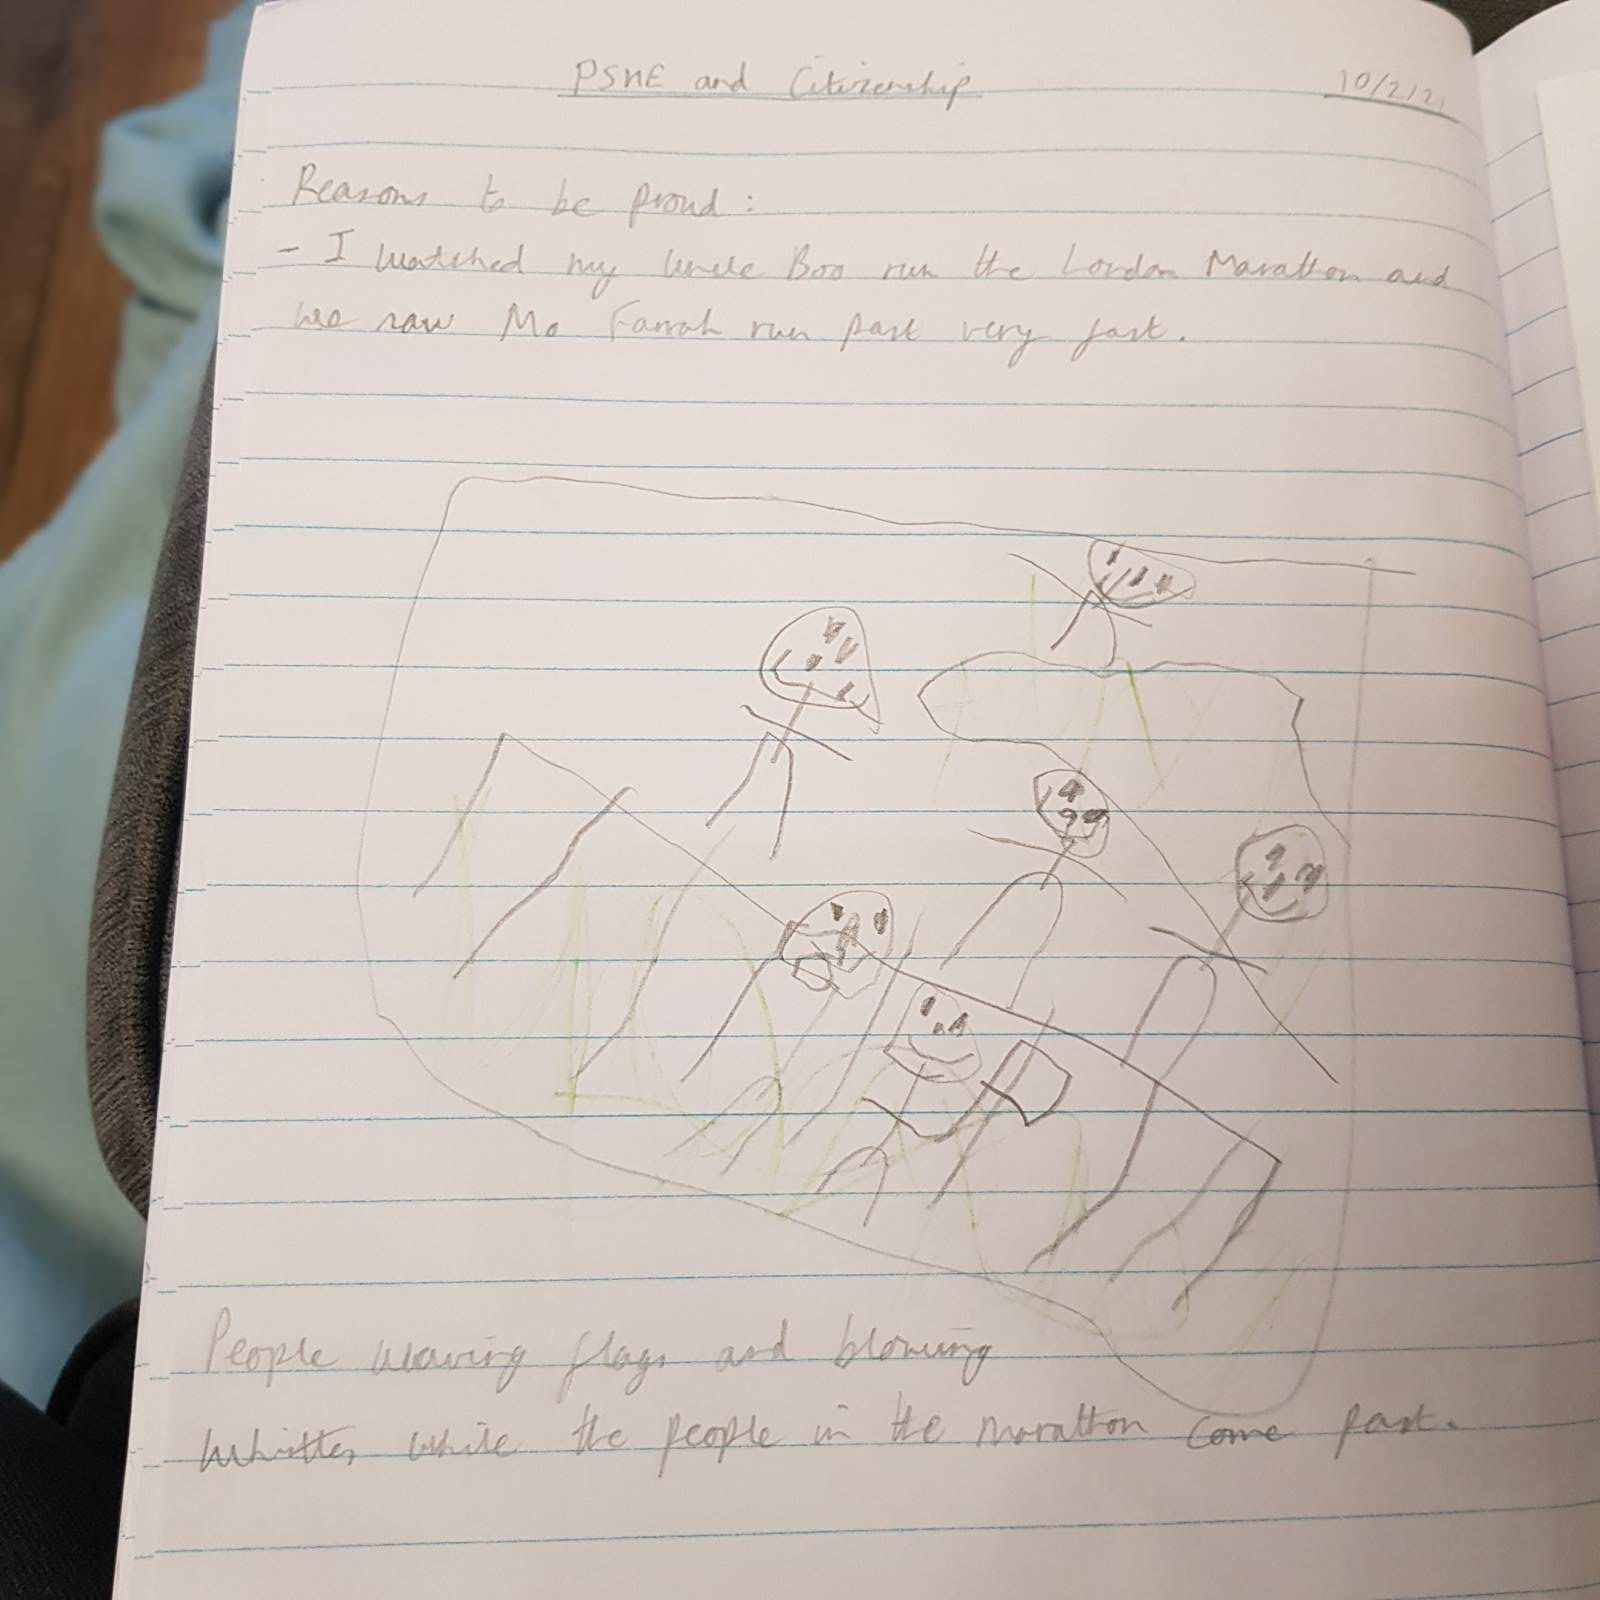 PSHE and Citizenship 10/2/21
Reasons to be proud:
- I watched my Uncle Boo run the London Marathon and
we saw Mo Farrah run past very fast.
People waving flags and blowing
whistles while the people in the marathon come past.